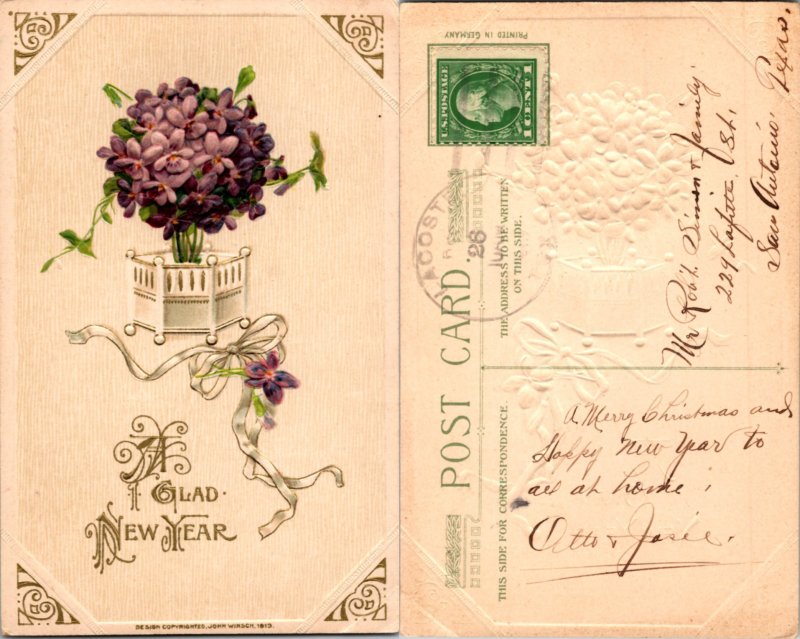 A
GLAD
NEW YEAR
DESIGN COPYRIGHTED, JOHN WINSCH, 1913.
PRINTED IN GERMANY
U.S. POSTAGE
1 CENT 1
26
POST CARD
THE ADDRESS TO BE WRITTEN
ON THIS SIDE.
THIS SIDE FOR CORRESPONDENCE.
Mr Robt. Simon & family
229 Lafitte St.,
San Antonio, Texas.
A Merry Christmas and
Happy New Year to
all at home;
Otto & Josie.